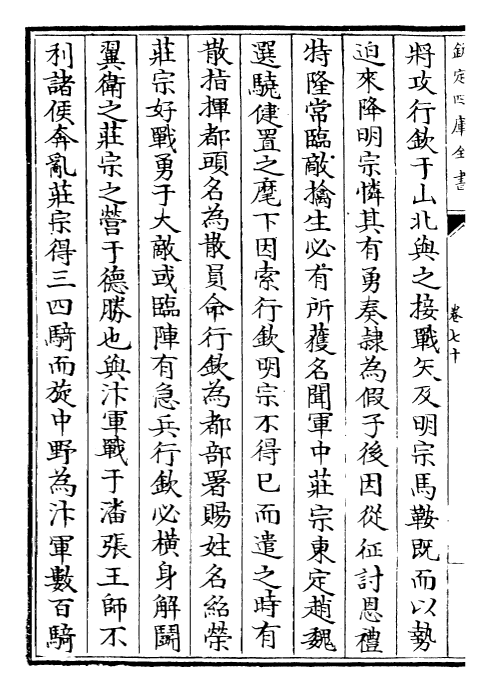 欽定四庫全書
卷七十
將攻行欽于山北與之接戰矢及明宗馬鞍既而以勢
迫來降明宗憐其有勇奏隸為假子後因從征討恩禮
特隆常臨敵擒生必有所獲名聞軍中莊宗東定趙魏
選驍健置之麾下因索行欽明宗不得已而遣之時有
散指揮都頭名為散員命行欽為都部署賜姓名紹榮
莊宗好戰勇于大敵或臨陣有急兵行欽必橫身解鬭
翼衛之莊宗之營于德勝也與汴軍戰于潘張王師不
利諸使奔亂莊宗得三四騎而旋中野為汴軍數百騎